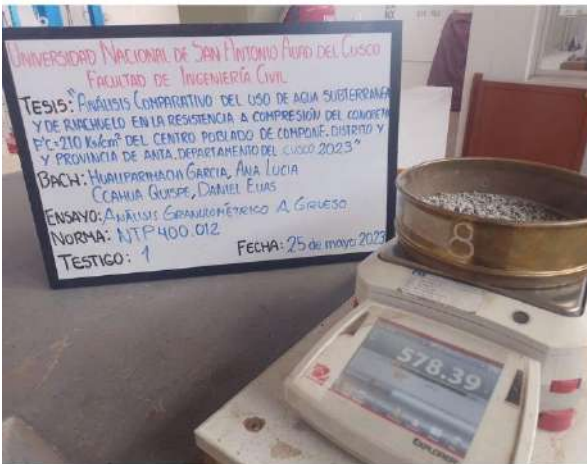 UNIVERSIDAD NACIONAL DE SAN ANTONIO ABAD DEL CUSCO
FACULTAD DE INGENIERÍA CIVIL
TESIS: "ANÁLISIS COMPARATIVO DEL USO DE AGUA SUBTERRANEA
Y DE RIACHUELO EN LA RESISTENCIA A COMPRESIÓN DEL CONCRETO
F'C=210 KG/CM² DEL CENTRO POBLADO DE COMPONE. DISTRITO Y
Y PROVINCIA DE ANTA. DEPARTAMENTO DEL CUSCO 2023"
BACH: HUALLPARIMACHI GARCIA, ANA LUCIA
CCAHUA QUISPE, DANIEL ELIAS
ENSAYO: ANÁLISIS GRANULOMÉTRICO A. GRUESO
NORMA: NTP 400.012
TESTIGO: 1
FECHA: 25 de mayo 2023
8
578.39
EXPLORER